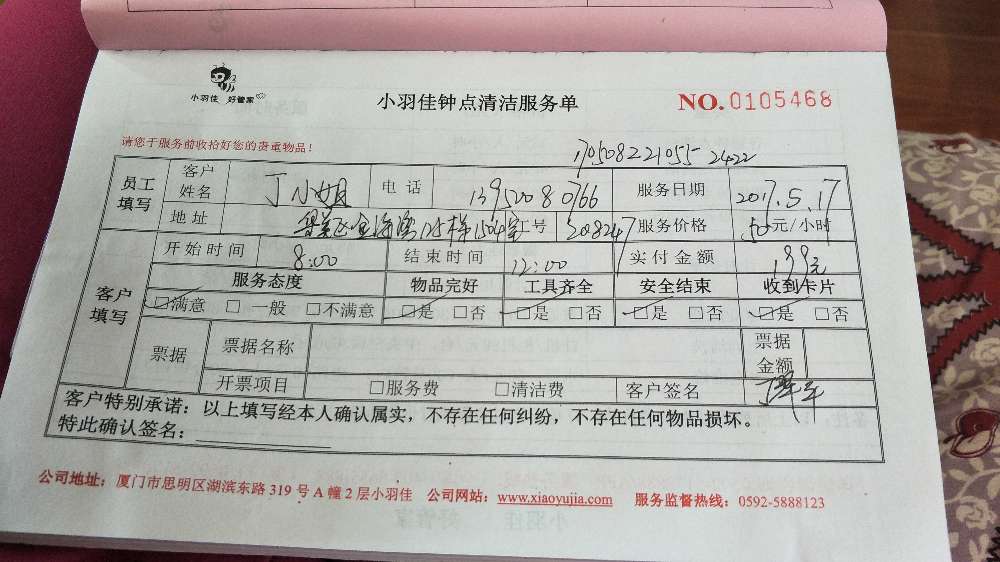 小羽佳 好管家
小羽佳钟点清洁服务单
NO.0105468
请您于服务前收拾好您的贵重物品!
170508221055 2422
员工填写 客户姓名 丁小姐 电话 13950080766 服务日期 2017.5.17
地址 工号 208247 服务价格 50元/小时
客户填写 开始时间 8:00 结束时间 12:00 实付金额 199元
服务态度 物品完好 工具齐全 安全结束 收到卡片
□满意 □一般 □不满意 □是 □否 □是 □否 □是 □否 □是 □否
票据 票据名称 票据金额
开票项目 □服务费 □清洁费 客户签名
客户特别承诺:以上填写经本人确认属实,不存在任何纠纷,不存在任何物品损坏。
特此确认签名:
公司地址:厦门市思明区湖滨东路 319 号 A 幢 2 层小羽佳 公司网站:www.xiaoyujia.com 服务监督热线:0592-5888123